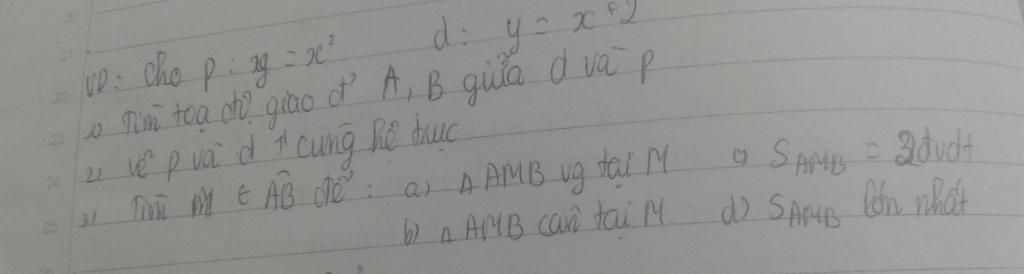 VD: Cho p: y = x² d: y = x + 2
1) Tìm toạ độ giao đ' A, B giữa d và p
2) Vẽ p và d cùng hệ trục
3) Tìm M ∈ AB để: a) Δ AMB vg tại M c) S AMB = 3đvdt
b) Δ AMB cân tại M d) S AMB lớn nhất